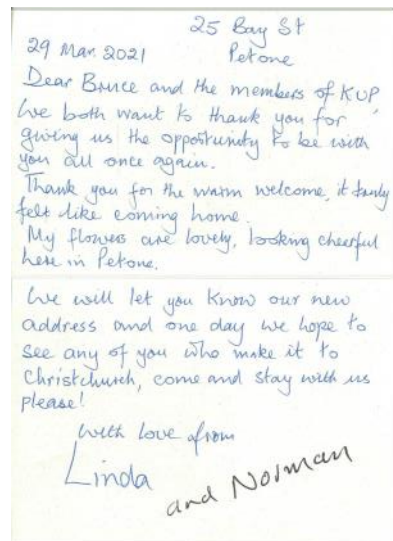 25 Bay St
29 Mar. 2021 Petone
Dear Bruce and the members of KUP,
We both want to thank you for
giving us the opportunity to be with
you all once again.
Thank you for the warm welcome, it truly
felt like coming home.
My flowers are lovely, looking cheerful
here in Petone.
We will let you know our new
address and one day we hope to
see any of you who make it to
Christchurch, come and stay with us
please!
With love from
Linda
and Norman